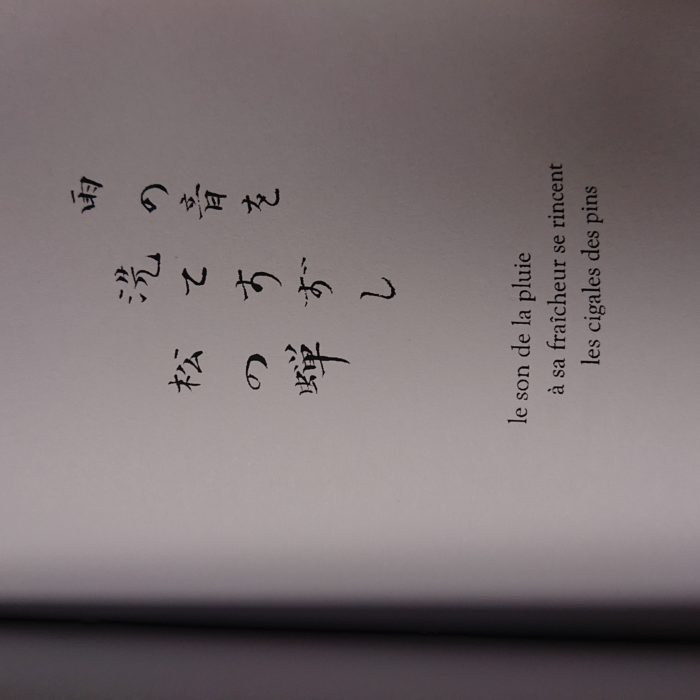 雨の音を
洗てすずし
松の蝉
le son de la pluie
à sa fraîcheur se rincent
les cigales des pins